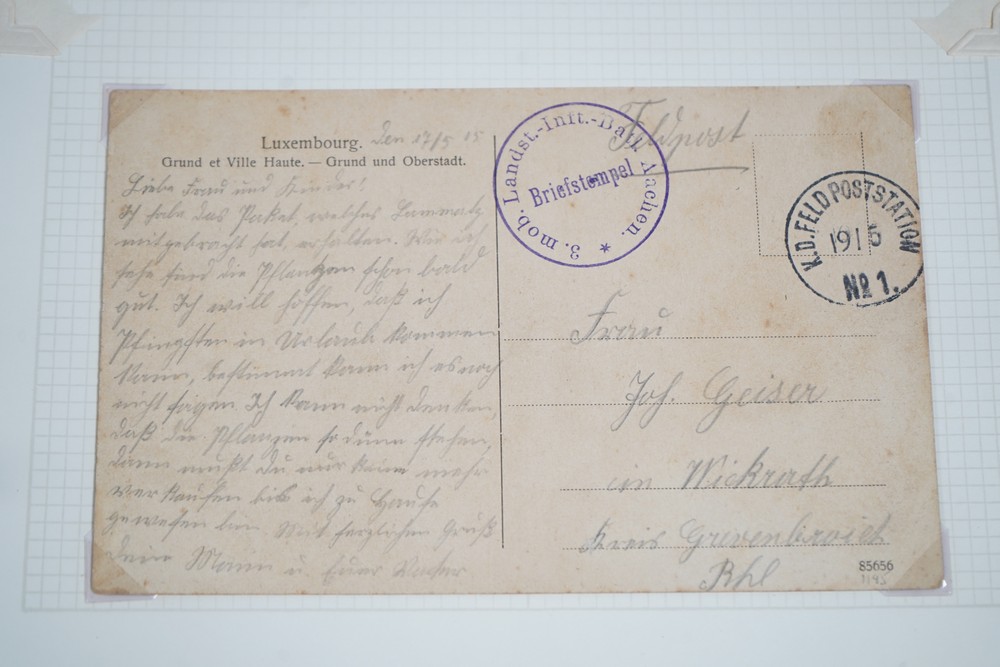 Luxembourg. den 17/5 15
Grund et Ville Haute. — Grund und Oberstadt.
Liebe Frau und Kinder!
Ich habe das Paket, welches
mitgebracht hat, erhalten. Wie ich
sehe sind die Pflanzen schon bald
gut. Ich will hoffen, daß ich
Pfingsten in Urlaub kommen
kann, bestimmt kann ich es noch
nicht sagen Ich kann nicht denken,
daß die Pflanzen so dünn stehen,
dann mußt Du nur keine mehr
verkaufen bis ich zu Hause
gewesen bin. Mit herzlichem Gruß
Dein Mann u. Euer Vater
Feldpost
3. mob. Landst.-Inft.-Batl. Aachen. *
Briefstempel
K.D. FELDPOSTSTATION
1915
No 1.
Frau
Joh. Geiser
in Wickrath
Kreis Grevenbroich
Rhl
85656
1195